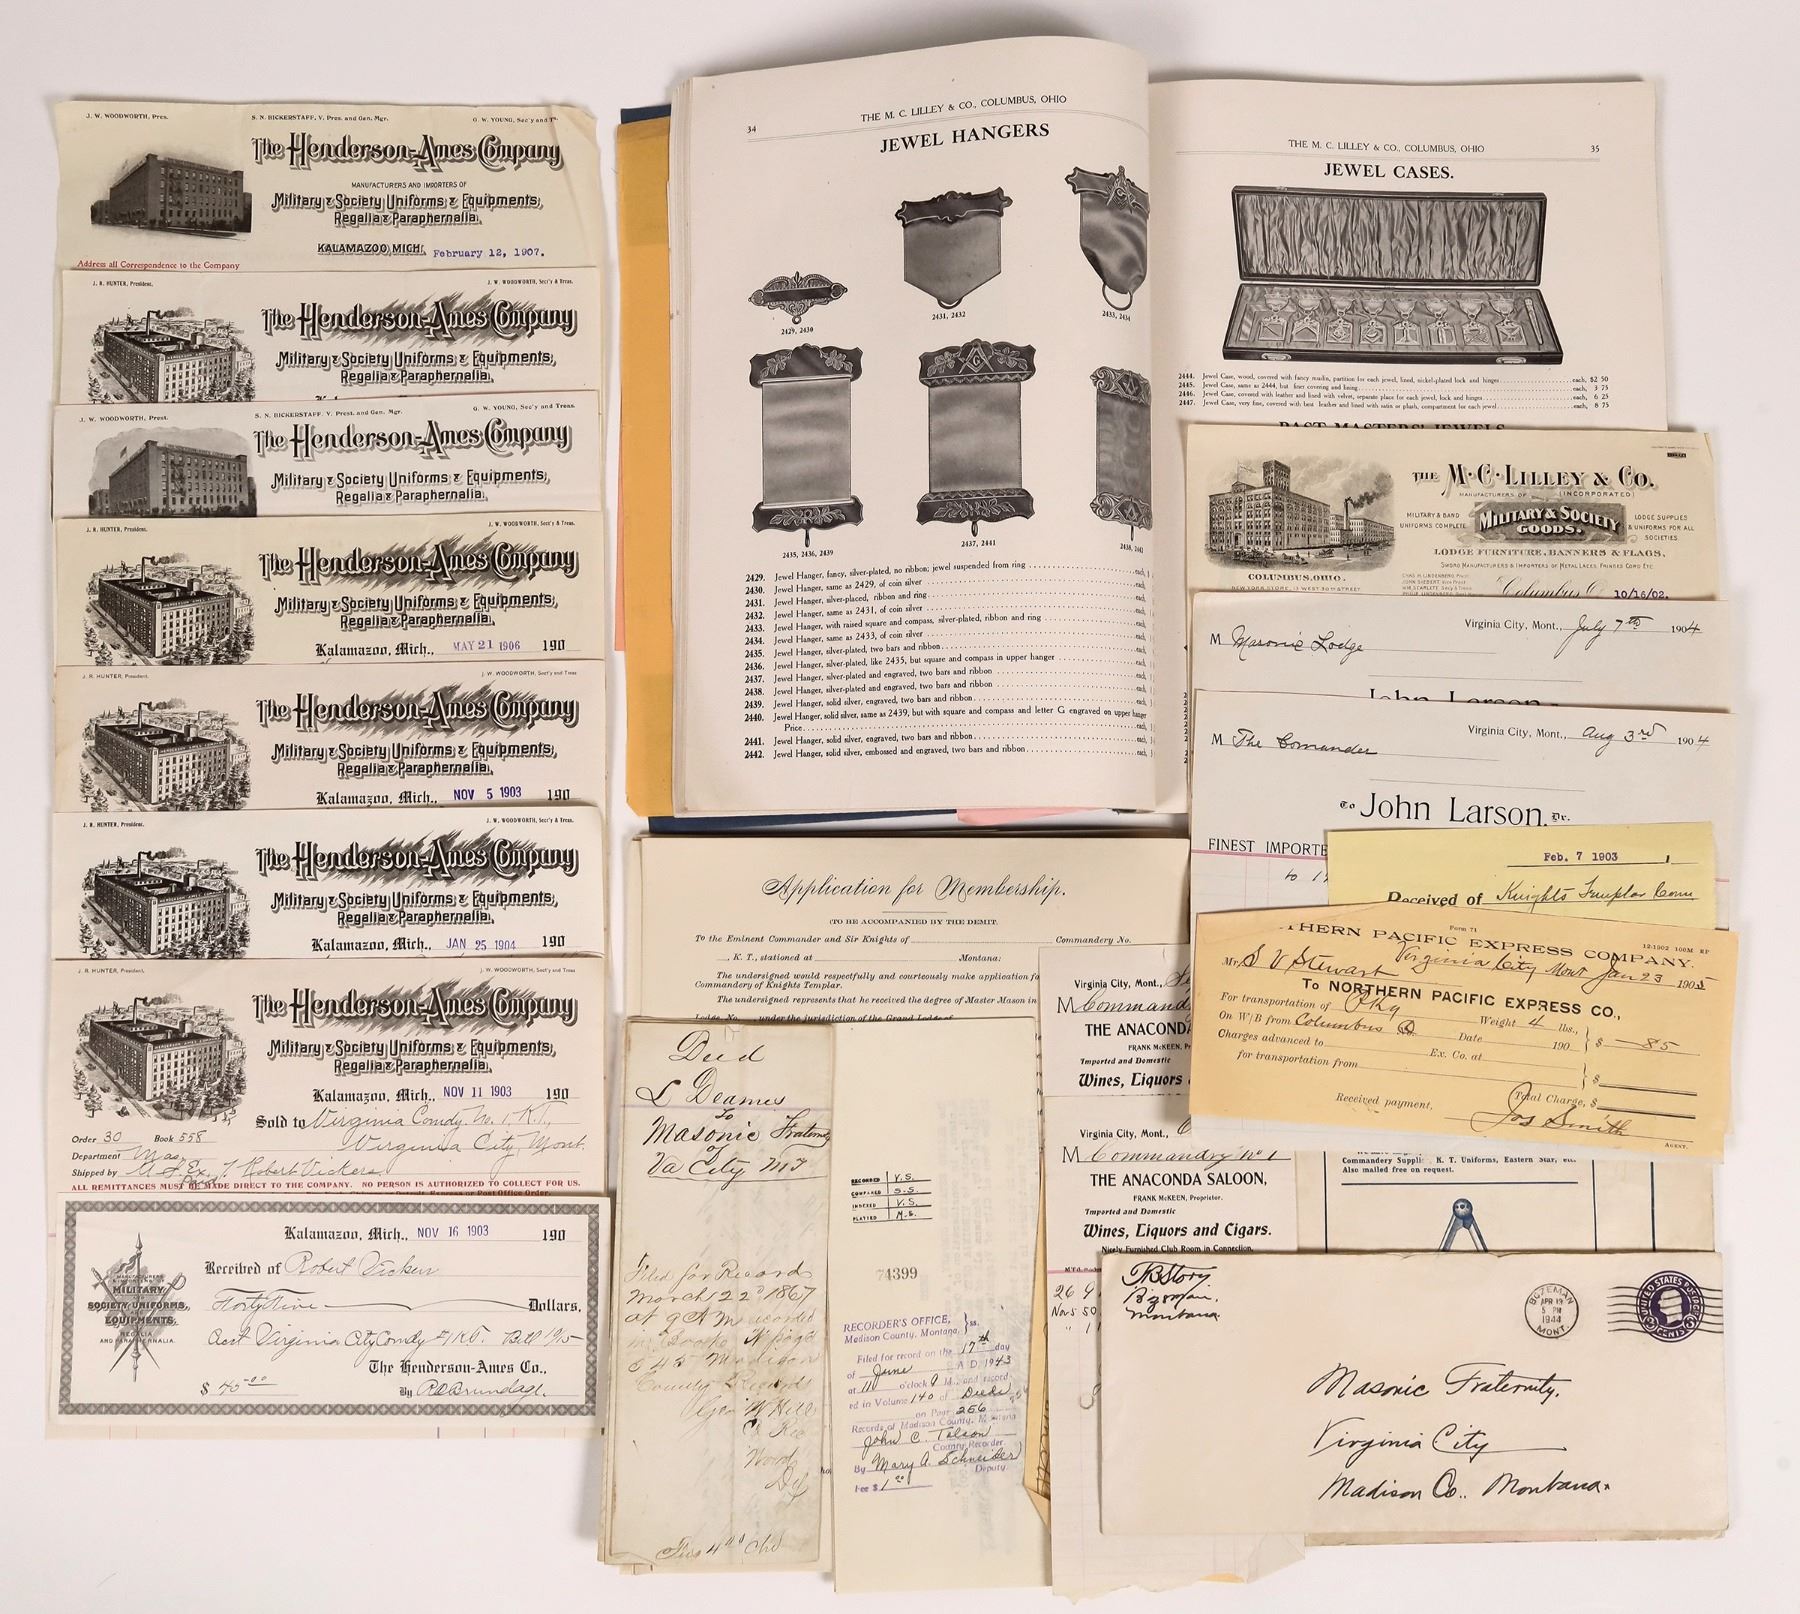 J. W. WOODWORTH, Pres. S. N. BICKERSTAFF, V. Pres. and Gen. Mgr. G. W. YOUNG, Sec'y and
The Henderson-Ames Company
MANUFACTURERS AND IMPORTERS OF
Military & Society Uniforms & Equipments,
Regalia & Paraphernalia.
KALAMAZOO, MICH. February 12, 1907.
Address all Correspondence to the Company
J. R. HUNTER, President. J. W. WOODWORTH, Sec'y & Treas.
The Henderson-Ames Company
Military & Society Uniforms & Equipments,
Regalia & Paraphernalia.
J. W. WOODWORTH, Prest. S. N. BICKERSTAFF, V. Prest. and Gen. Mgr. G. W. YOUNG, Sec'y and Treas.
The Henderson-Ames Company
Military & Society Uniforms & Equipments,
Regalia & Paraphernalia.
J. R. HUNTER, President. J. W. WOODWORTH, Sec'y & Treas.
The Henderson-Ames Company
Military & Society Uniforms & Equipments,
Regalia & Paraphernalia.
Kalamazoo, Mich., MAY 21 1906 190
J. R. HUNTER, President. J. W. WOODWORTH, Sec'y and Treas
The Henderson-Ames Company
Military & Society Uniforms & Equipments,
Regalia & Paraphernalia.
Kalamazoo, Mich., NOV 5 1903 190
J. R. HUNTER, President. J. W. WOODWORTH, Sec'y & Treas.
The Henderson-Ames Company
Military & Society Uniforms & Equipments,
Regalia & Paraphernalia.
Kalamazoo, Mich., JAN 25 1904 190
J. R. HUNTER, President. J. W. WOODWORTH, Sec'y and Treas
The Henderson-Ames Company
Military & Society Uniforms & Equipments,
Regalia & Paraphernalia.
Kalamazoo, Mich., NOV 11 1903 190
Sold to Virginia Comdy No. 1, K.T.,
Virginia City, Mont.
Order 30 Book 558
Department Mas
Shipped by Ex. Robert Vickers
ALL REMITTANCES MUST BE MADE DIRECT TO THE COMPANY. NO PERSON IS AUTHORIZED TO COLLECT FOR US.
Kalamazoo, Mich., NOV 16 1903 190
Received of Robert Vickers
Forty Five Dollars,
Acct Virginia City Comdy #1 K.T. Bill 9/15
The Henderson-Ames Co.,
$ 45.00 By
MANUFACTURERS
MILITARY
SOCIETY UNIFORMS,
AND
EQUIPMENTS,
REGALIA
AND PARAPHERNALIA.
34
THE M. C. LILLEY & CO., COLUMBUS, OHIO
JEWEL HANGERS
2429, 2430
2431, 2432
2433, 2434
2435, 2436, 2439
2437, 2441
2438, 2442
2429. Jewel Hanger, fancy, silver-plated, no ribbon; jewel suspended from ring each,
2430. Jewel Hanger, same as 2429, of coin silver each,
2431. Jewel Hanger, silver-placed, ribbon and ring each,
2432. Jewel Hanger, same as 2431, of coin silver each,
2433. Jewel Hanger, with raised square and compass, silver-plated, ribbon and ring each,
2434. Jewel Hanger, same as 2433, of coin silver each,
2435. Jewel Hanger, silver-plated, two bars and ribbon each,
2436. Jewel Hanger, silver-plated, like 2435, but square and compass in upper hanger each,
2437. Jewel Hanger, silver-plated and engraved, two bars and ribbon each,
2438. Jewel Hanger, silver-plated and engraved, two bars and ribbon each,
2439. Jewel Hanger, solid silver, engraved, two bars and ribbon each,
2440. Jewel Hanger, solid silver, same as 2439, but with square and compass and letter G engraved on upper hanger
Price each,
2441. Jewel Hanger, solid silver, engraved, two bars and ribbon each,
2442. Jewel Hanger, solid silver, embossed and engraved, two bars and ribbon each,
THE M. C. LILLEY & CO., COLUMBUS, OHIO 35
JEWEL CASES.
2444. Jewel Case, wood, covered with fancy muslin, partition for each jewel, lined, nickel-plated lock and hinges each, $2 50
2445. Jewel Case, same as 2444, but finer covering and lining each, 3 75
2446. Jewel Case, covered with leather and lined with velvet, separate place for each jewel, lock and hinges each, 6 25
2447. Jewel Case, very fine, covered with best leather and lined with satin or plush, compartment for each jewel each, 8 75
PAST MASTERS' JEWELS
THE M·C·LILLEY & CO.
MANUFACTURERS OF (INCORPORATED)
MILITARY & BAND UNIFORMS COMPLETE
MILITARY & SOCIETY GOODS.
LODGE SUPPLIES & UNIFORMS FOR ALL SOCIETIES
LODGE FURNITURE, BANNERS & FLAGS,
SWORD MANUFACTURERS & IMPORTERS OF METAL LACES, FRINGES CORD ETC
COLUMBUS, OHIO.
NEW YORK STORE, 13 WEST 30TH STREET
Columbus O 10/16/02.
Virginia City, Mont., July 7th 1904
M Masonic Lodge
John Larson
Virginia City, Mont., Aug 3rd 1904
M The Comander
To John Larson, Dr.
FINEST IMPORTE
Feb. 7 1903
Received of Knights Templar Com
THERN PACIFIC EXPRESS COMPANY.
Form 71
12-1902 100M
Virginia City Mont Jan 23 1905
Mr. S V Stewart
To NORTHERN PACIFIC EXPRESS CO.,
For transportation of Pkg Weight 4 lbs.,
On W/B from Columbus O Date 190 $ 85
Charges advanced to Ex. Co. at
for transportation from $
Total Charge, $
Received payment, Jos Smith
AGENT.
Application for Membership.
(TO BE ACCOMPANIED BY THE DEMIT.
To the Eminent Commander and Sir Knights of Commandery No.
, K. T., stationed at Montana:
The undersigned would respectfully and courteously make application fo
Commandery of Knights Templar.
The undersigned represents that he received the degree of Master Mason in
Lodge, No. under the jurisdiction of the Grand Lodge of
Virginia City, Mont.,
M Command
THE ANACONDA
FRANK McKEEN, P
Imported and Domestic
Wines, Liquors
Virginia City, Mont.,
M Commandry No 1
THE ANACONDA SALOON,
FRANK McKEEN, Proprietor.
Imported and Domestic
Wines, Liquors and Cigars.
Nicely Furnished Club Room in Connection.
Commandery Suppli K. T. Uniforms, Eastern Star, etc.
Also mailed free on request.
Deed
L Deames
To
Masonic Fraternity
of
Va City M T
Filed for Record
March 22d 1867
at 9 A M recorded
in Book page
645 Madison
County Records
Geo W Hill
Co Rec
RECORDED V.S.
COMPARED S.S.
INDEXED V.S.
PLATTED M.S.
74399
RECORDER'S OFFICE, ss.
Madison County, Montana.
Filed for record on the 17th day
of June A. D. 1943
at 11 o'clock A M., and record-
ed in Volume 140 of Deeds
on Page 256
Records of Madison County, Montana
John C. Tolson
County Recorder
By Mary A. Schneider
Deputy.
Fee $ 1.00
TB Story.
Bozeman,
Montana
BOZEMAN
APR 19
5 PM
1944
MONT.
UNITED STATES POSTAGE
3 CENTS 3
Masonic Fraternity.
Virginia City
Madison Co., Montana.